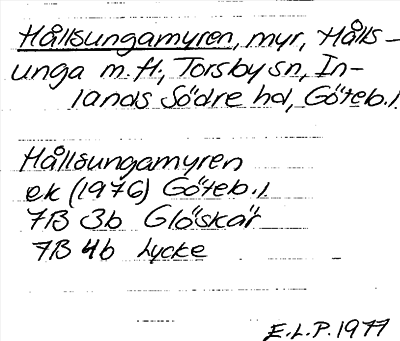 Hållsungamyren, myr, Hålls-
unga m.fl., Torsby sn, In-
lands Södre hd, Göteb.l.
Hållsungamyren
ek (1976) Göteb.l.
7B 3b Glöskär
7B 4b Lycke
E.L.P. 1977